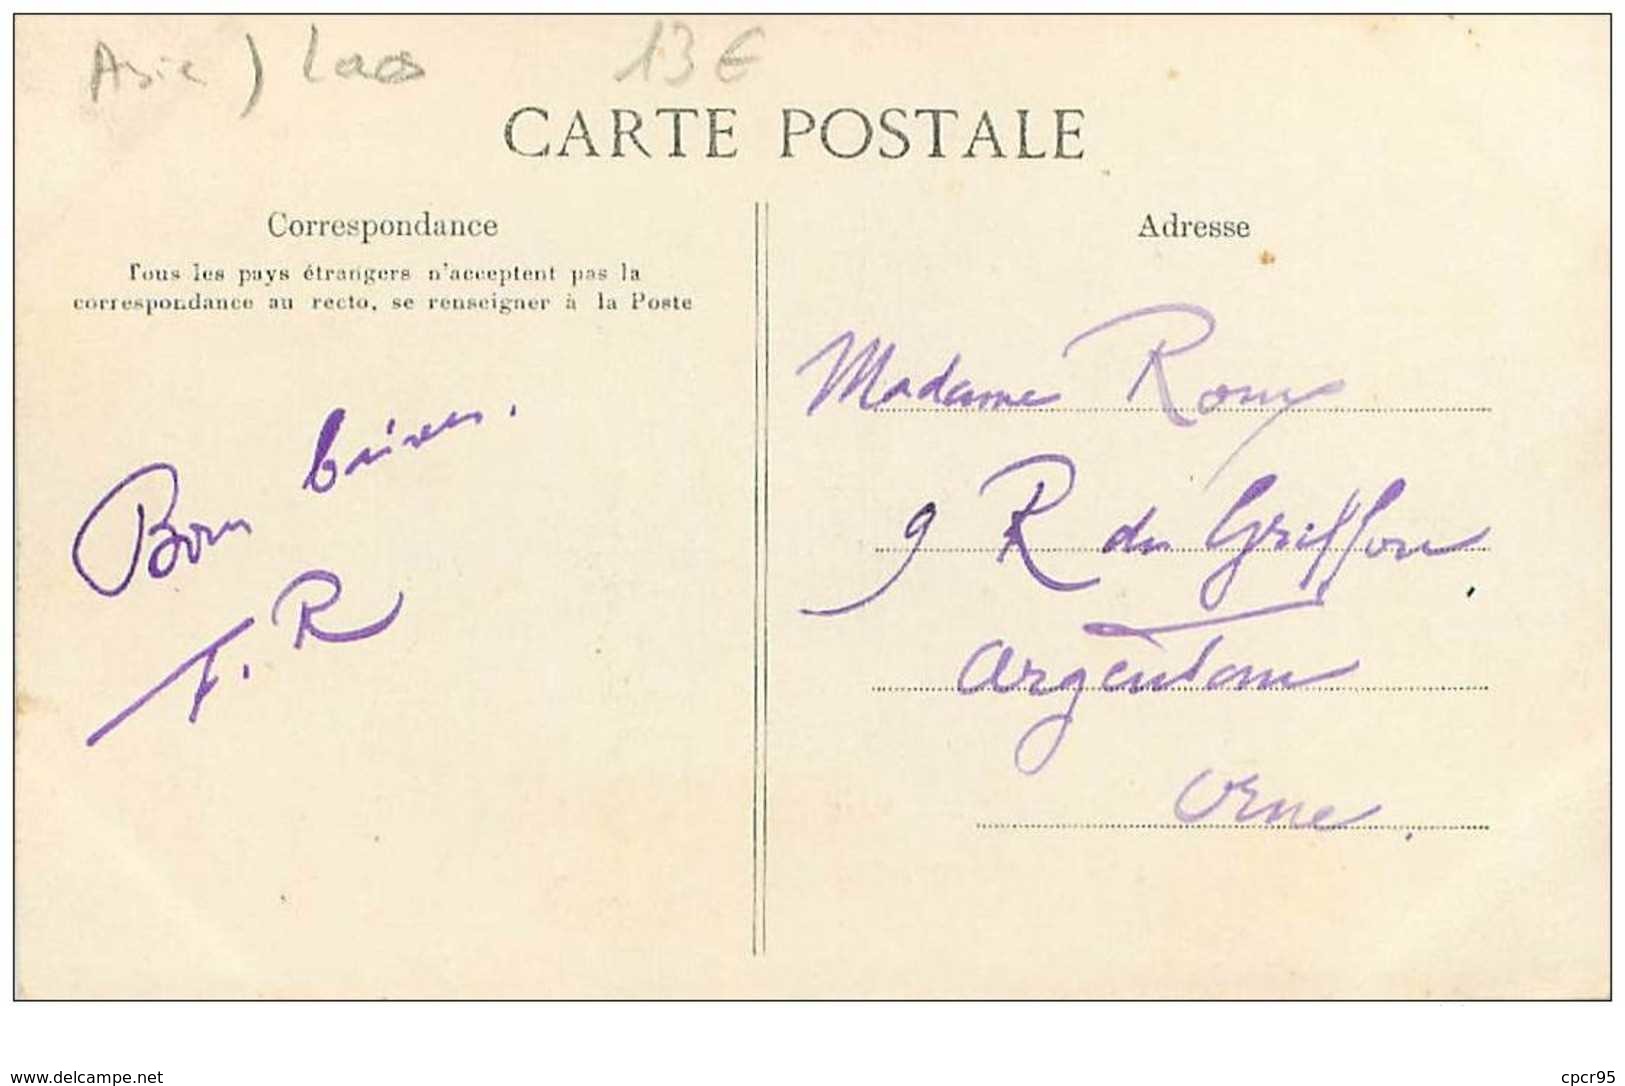 Asie) Laos 13€
CARTE POSTALE
Correspondance
Tous les pays étrangers n'acceptent pas la
correspondance au recto, se renseigner à la Poste
Bons baisers.
F. R
Adresse
Madame Romy
9 R du Griffon
Argentan
Orne.
www.delcampe.net
cpcr95